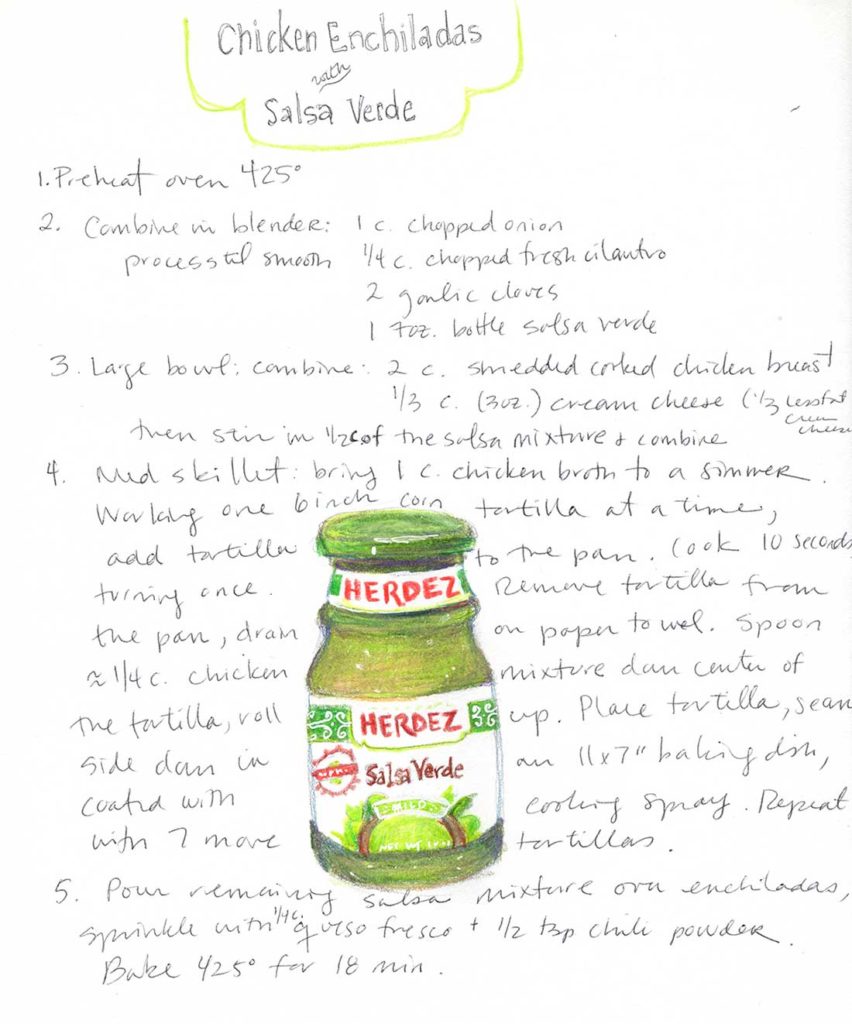 Chicken Enchiladas
with
Salsa Verde
1. Preheat oven 425°
2. Combine in blender: 1 c. chopped onion
process til smooth 1/4 c. chopped fresh cilantro
2 garlic cloves
1 7oz. bottle salsa verde
3. Large bowl: combine: 2 c. shredded cooked chicken breast
1/3 c. (3oz.) cream cheese (1/3 less fat
cream
cheese
then stir in 1/2 c of the salsa mixture + combine
4. Med skillet: bring 1 c. chicken broth to a simmer.
Working one 6 inch corn tortilla at a time,
add tortilla to the pan. Cook 10 seconds
turning once. Remove tortilla from
the pan, drain on paper towel. Spoon
≈ 1/4 c. chicken mixture down center of
the tortilla, roll up. Place tortilla, seam
side down in an 11x7" baking dish,
coated with cooking spray. Repeat
with 7 more tortillas.
HERDEZ
HERDEZ
Salsa Verde
MILD
NET WT.
5. Pour remaining salsa mixture over enchiladas,
sprinkle with 1/4 c. queso fresco + 1/2 tsp chili powder.
Bake 425° for 18 min.